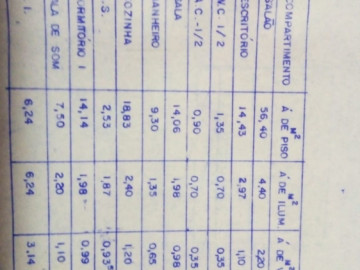 COMPARTIMENTO Á. M² DE PISO Á M² DE ILUM. Á DE
SALÃO 56,40 4,40 2,20
ESCRITÓRIO 14,43 2,97 1,10
W.C. 1/2 1,35 0,70 0,35
A.C.-1/2 0,90 0,70 0,35
SALA 14,06 1,98 0,98
BANHEIRO 9,30 1,35 0,65
COZINHA 18,83 2,40 1,20
.S. 2,53 1,87 0,935
DORMITÓRIO I 14,14 1,98 0,99
SALA DE SOM 7,50 2,20 1,10
I. 6,24 6,24 3,14